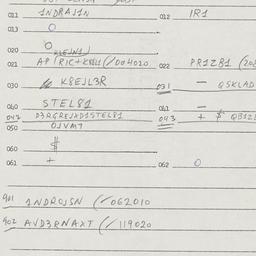 011 1NDRAJ1N 012 IR1
013 O
020 O
KLEJN1J
021 AP (RIC+KEL1 (/004020 022 PR1Z81 (20
030 K8EJL3R 031 — QSKLAD
040 STEL81 041 —
042 D3RGREJXD1STEL81 043 + $ QB1Z
050 OJVM7
060 $
061 + 062 O
901 1NDROJSN (/062010
902 AVD3RNAXT (/119020